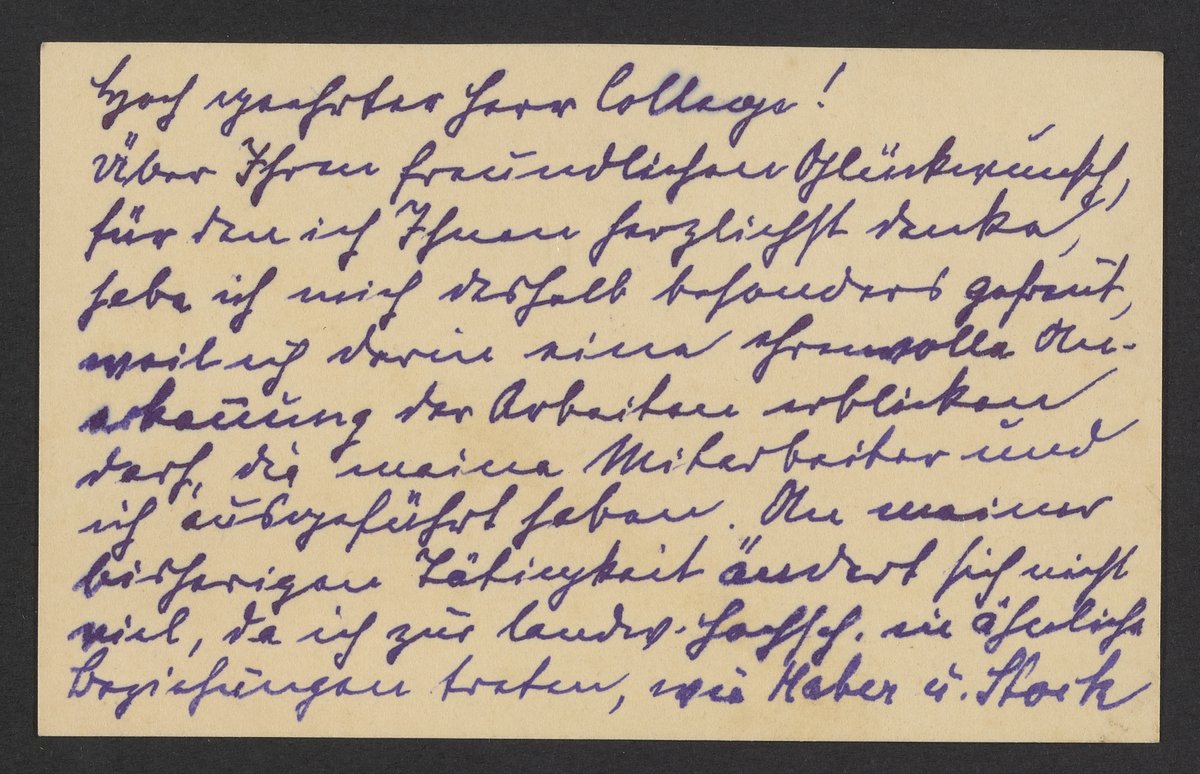 Hoch geehrter Herr College!
Über Ihren freundlichen Glückwunsch,
für den ich Ihnen herzlichst danke,
habe ich mich deshalb besonders gefreut,
weil ich darin eine ehrenvolle An-
erkennung der Arbeiten erblicken
darf, die meine Mitarbeiter und
ich ausgeführt haben. An meiner
bisherigen Tätigkeit ändert sich nicht
viel, da ich zur landw. Hochsch. in ähnliche
Beziehungen treten, wie Haber u. Stock